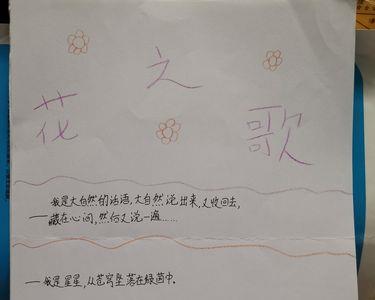 花之歌
我是大自然的话语,大自然说出来,又收回去,
——藏在心间,然何又说一遍……
——我是星星,从苍穹坠落在绿茵中。